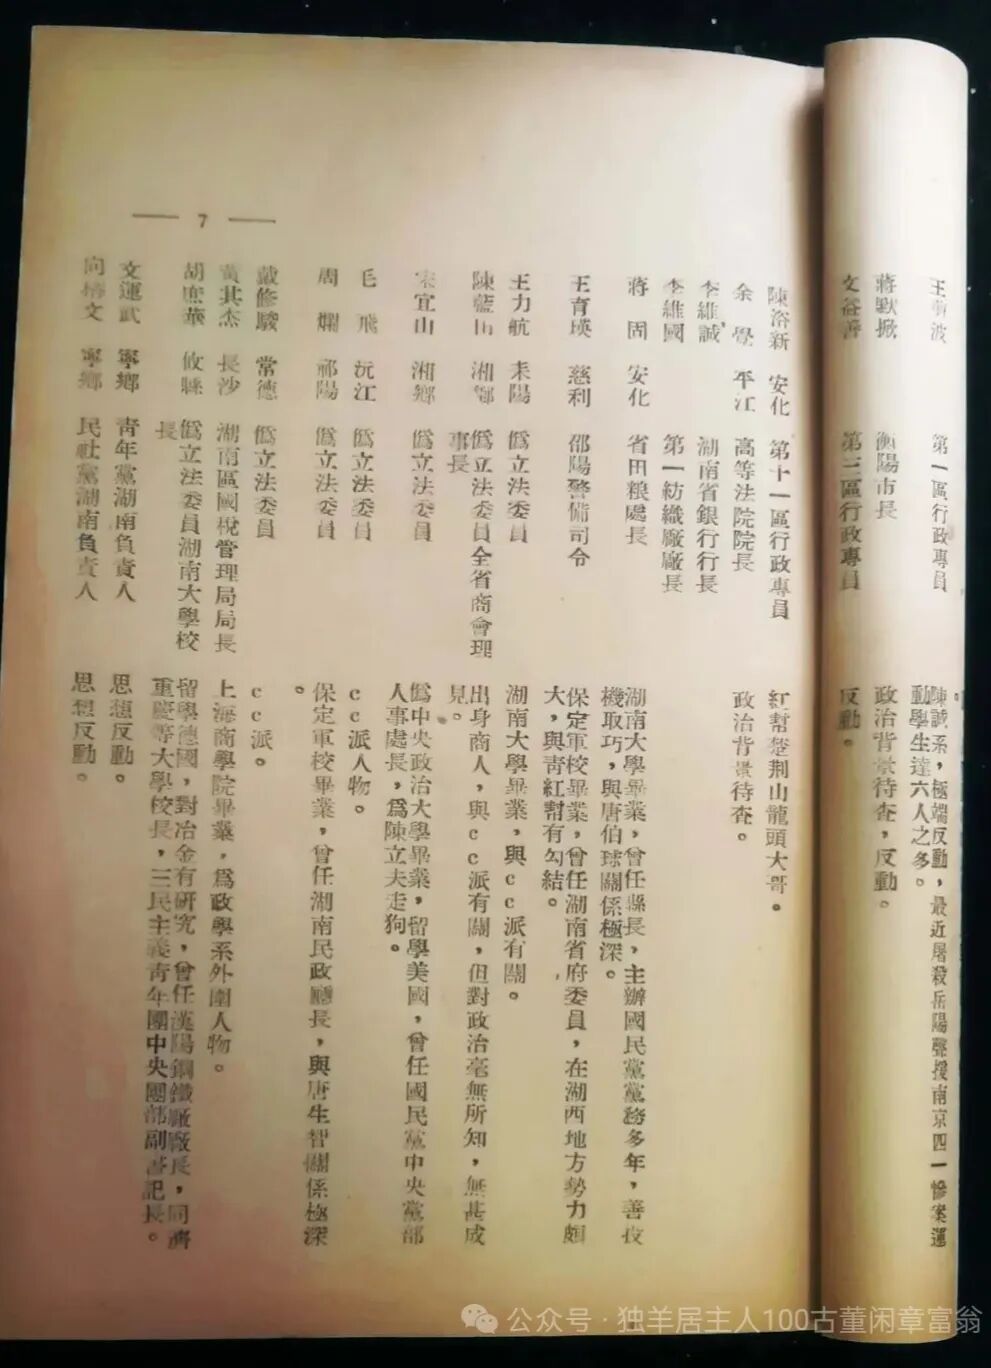 第一區行政專員　陳誠系，極端反動，最近屠殺岳陽聲援南京四一慘案運
動學生達六人之多。
蔣默掀　衡陽市長　政治背景待查，反動。
文谷善　第三區行政專員　反動。
陳浴新　安化　第十一區行政專員　紅幫楚荆山龍頭大哥。
余覺　平江　高等法院院長　政治背景待查。
李維誠　湖南省銀行行長
李維國　第一紡織廠廠長
蔣固　安化　省田粮處長　湖南大學畢業，曾任縣長，主辦國民黨黨務多年，善投
機取巧，與唐伯球關係極深。
王育瑛　慈利　邵陽警備司令　保定軍校畢業，曾任湖南省府委員，在湖西地方勢力頗
大，與靑紅幫有勾結。
王力航　耒陽　僞立法委員　湖南大學畢業，與cc派有關。
陳藍田　湘鄉　僞立法委員全省商會理
事長　出身商人，與cc派有關，但對政治毫無所知，無甚成
見。
宋宜山　湘鄉　僞立法委員　僞中央政治大學畢業，留學美國，曾任國民黨中央黨部
人事處長，爲陳立夫走狗。
毛飛　沅江　僞立法委員　cc派人物。
周斕　祁陽　僞立法委員　保定軍校畢業，曾任湖南民政廳長，與唐生智關係極深
。
戴修駿　常德　僞立法委員　cc派。
黃其杰　長沙　湖南區國稅管理局局長　上海商學院畢業，爲政學系外圍人物。
胡庶華　攸縣　僞立法委員湖南大學校
長　留學德國，對冶金有研究，曾任漢陽鋼鐵廠廠長，同濟
重慶等大學校長，三民主義靑年團中央團部副書記長。
文運武　寧鄉　靑年黨湖南負責人　思想反動。
向　文　寧鄉　民社黨湖南負責人　思想反動。
— 7 —
公众号·独羊居主人100古董闲章富翁